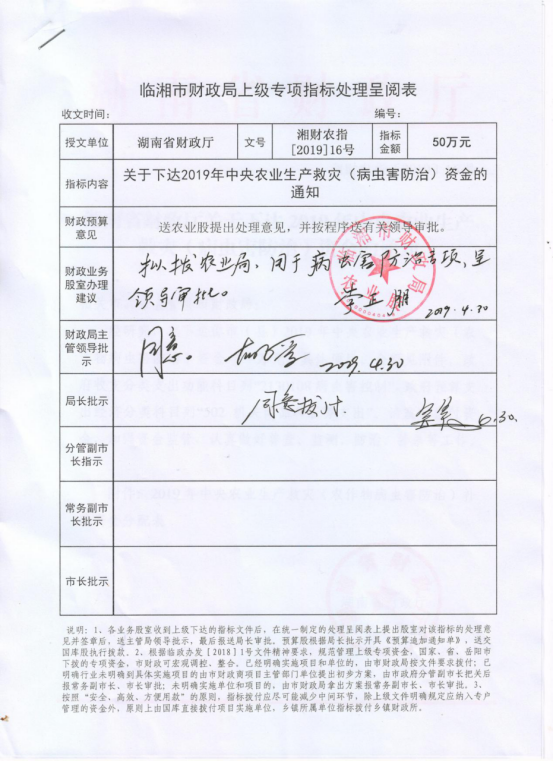 临湘市财政局上级专项指标处理呈阅表
收文时间： 编号：
授文单位 湖南省财政厅 文号 湘财农指[2019]16号 指标金额 50万元
指标内容 关于下达2019年中央农业生产救灾（病虫害防治）资金的通知
财政预算意见 送农业股提出处理意见，并按程序送有关领导审批。
财政业务股室办理建议 拟拨农业局，用于病虫害防治专项，呈
领导审批。
2019.4.30
财政局主管领导批示 同意。 2019.4.30
局长批示 同意拨付. 6.30.
分管副市长指示
常务副市长批示
市长批示
说明：1、各业务股室收到上级下达的指标文件后，在统一制定的处理呈阅表上提出股室对该指标的处理意
见并签章后，送主管局领导批示，最后报送局长审批。预算股根据局长批示开具《预算追加通知单》，送交
国库股执行拨款。2、根据临政办发[2018]1号文件精神要求，规范管理上级专项资金，国家、省、岳阳市
下拨的专项资金，市财政可宏观调控、整合。已经明确实施项目和单位的，由市财政局按文件要求拨付；已
明确行业未明确到具体实施项目的由市财政商项目主管部门单位提出初步方案，由市政府分管副市长把关后
报常务副市长、市长审批；未明确实施单位和项目的，由市财政局拿出方案报常务副市长、市长审批。3、
按照“安全、高效、方便用款”的原则，指标拨付应尽可能减少中间环节，除上级文件明确规定应纳入专户
管理的资金外，原则上由国库直接拨付项目实施单位，乡镇所属单位指标拨付乡镇财政所。